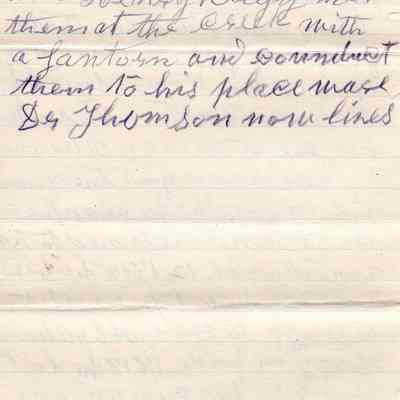 them at the Creek with
a lantorn and counduct
them to his place ware
Dr Thomson now lives